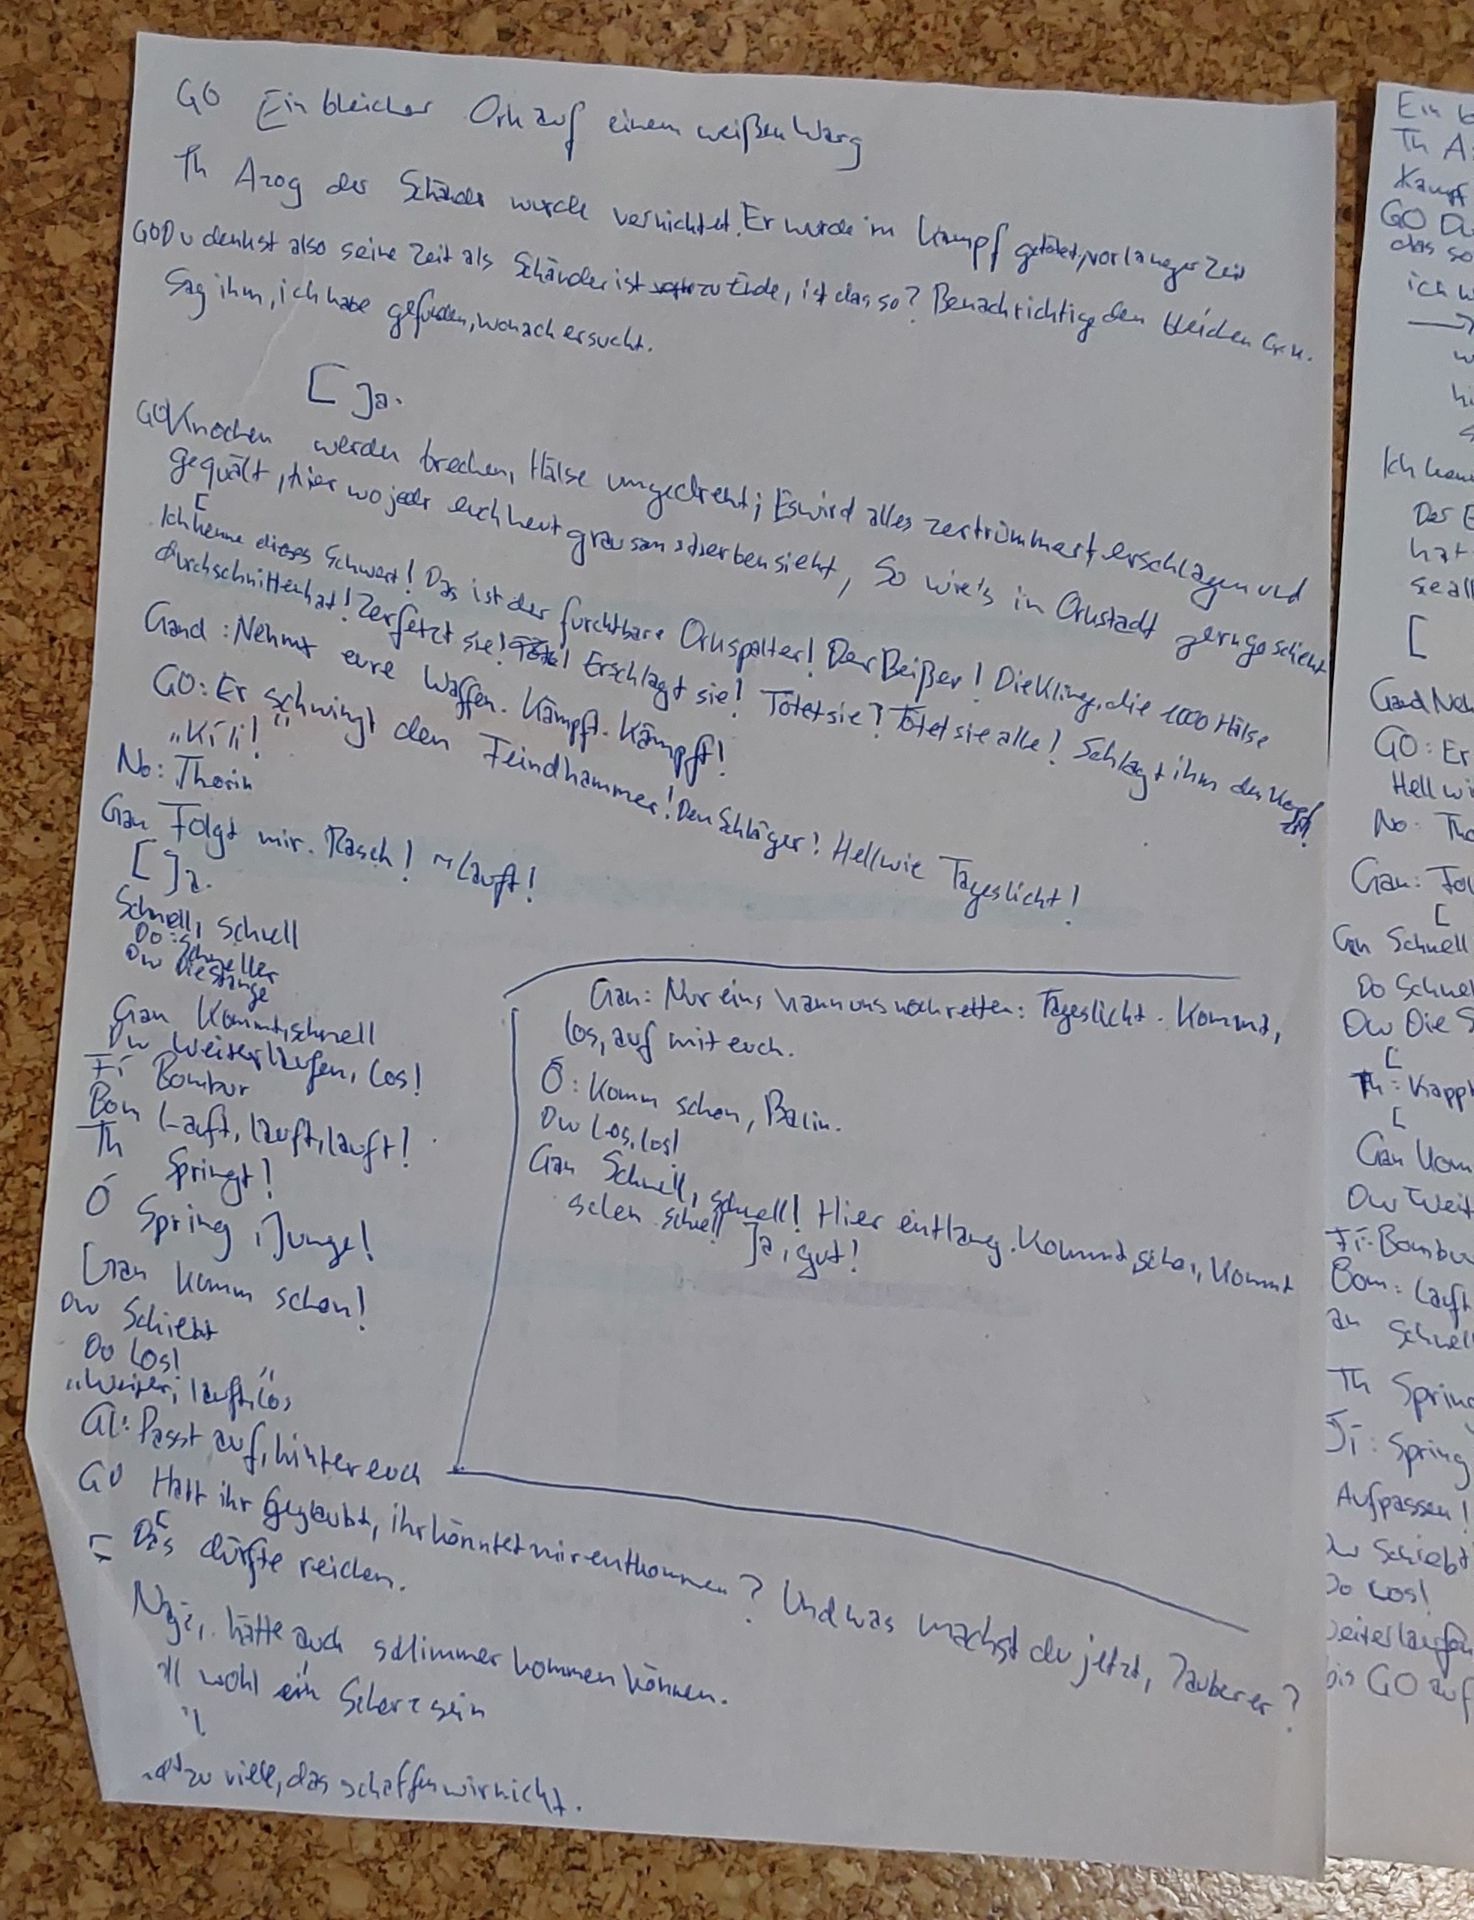 GO Ein bleicher Ork auf einem weißen Warg
Th Azog der Schänder wurde vernichtet. Er wurde im Kampf getötet, vor langer Zeit
GO Du denkst also seine Zeit als Schänder ist zu Ende, ist das so? Benachrichtige den bleichen Ork.
Sag ihm, ich habe gefunden, wonach er sucht.
[ Ja.
GO Knochen werden brechen, Hälse umgedreht; Es wird alles zertrümmert, erschlagen und
gequält, hier wo jeder euch heut grausam sterben sieht, So wie's in Orkstadt gern geschieht
[
Ich kenne dieses Schwert! Das ist der furchtbare Orkspalter! Der Beißer! Die Klinge, die 1000 Hälse
durchschnitten hat! Zerfetzt sie! Erschlagt sie! Tötet sie? Tötet sie alle! Schlagt ihm den Kopf
Gand: Nehmt eure Waffen. Kämpft. Kämpft!
GO: Er schwingt den Feindhammer! Den Schläger! Hell wie Tageslicht!
„Kíli!"
No: Thorin
Gan Folgt mir. Rasch! Lauft!
[ Ja.
Schnell, Schnell
Do: Schneller
Dw Die Stange
Gan Kommt, schnell
Dw Weiterlaufen, Los!
Fí Bombur
Bom Lauft, lauft, lauft!
Th Springt!
Ó Spring, Junge!
[Gan Komm schon!
Dw Schiebt
Do Los!
„Weiter, lauft, los"
Gl: Passt auf, hinter euch
Gan: Nur eins kann uns noch retten: Tageslicht. Kommt,
los, auf mit euch.
Ó: Komm schon, Balin.
Dw Los, los!
Gan Schnell, schnell! Hier entlang. Kommt schon, kommt
schon schnell Ja, gut!
GO Habt ihr geglaubt, ihr könntet mir entkommen? Und was machst du jetzt, Zauberer?
[ Das dürfte reichen.
Naja, hätte auch schlimmer kommen können.
wohl ein Scherz sein
zu viele, das schaffen wir nicht.
Ein
Th
Kampf
GO Du
das so
ich
Ich
Der
hat
[
Gand
GO: Er
Hell wi
No: Tho
Gan: Fol
[
Gan Schnell
Do Schnel
Dw Die S
[
Th:
[
Gan Kom
Dw Weit
Fí: Bombur
Bom: Lauft
Schnell
Th Spring
Fí: Spring
Aufpassen!
Dw Schiebt
Do Los!
weiterlaufen
bis GO auf